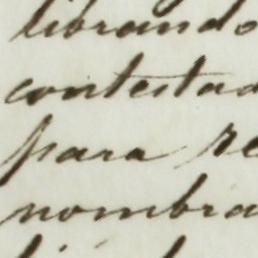 librando
contestad
para re
nombra